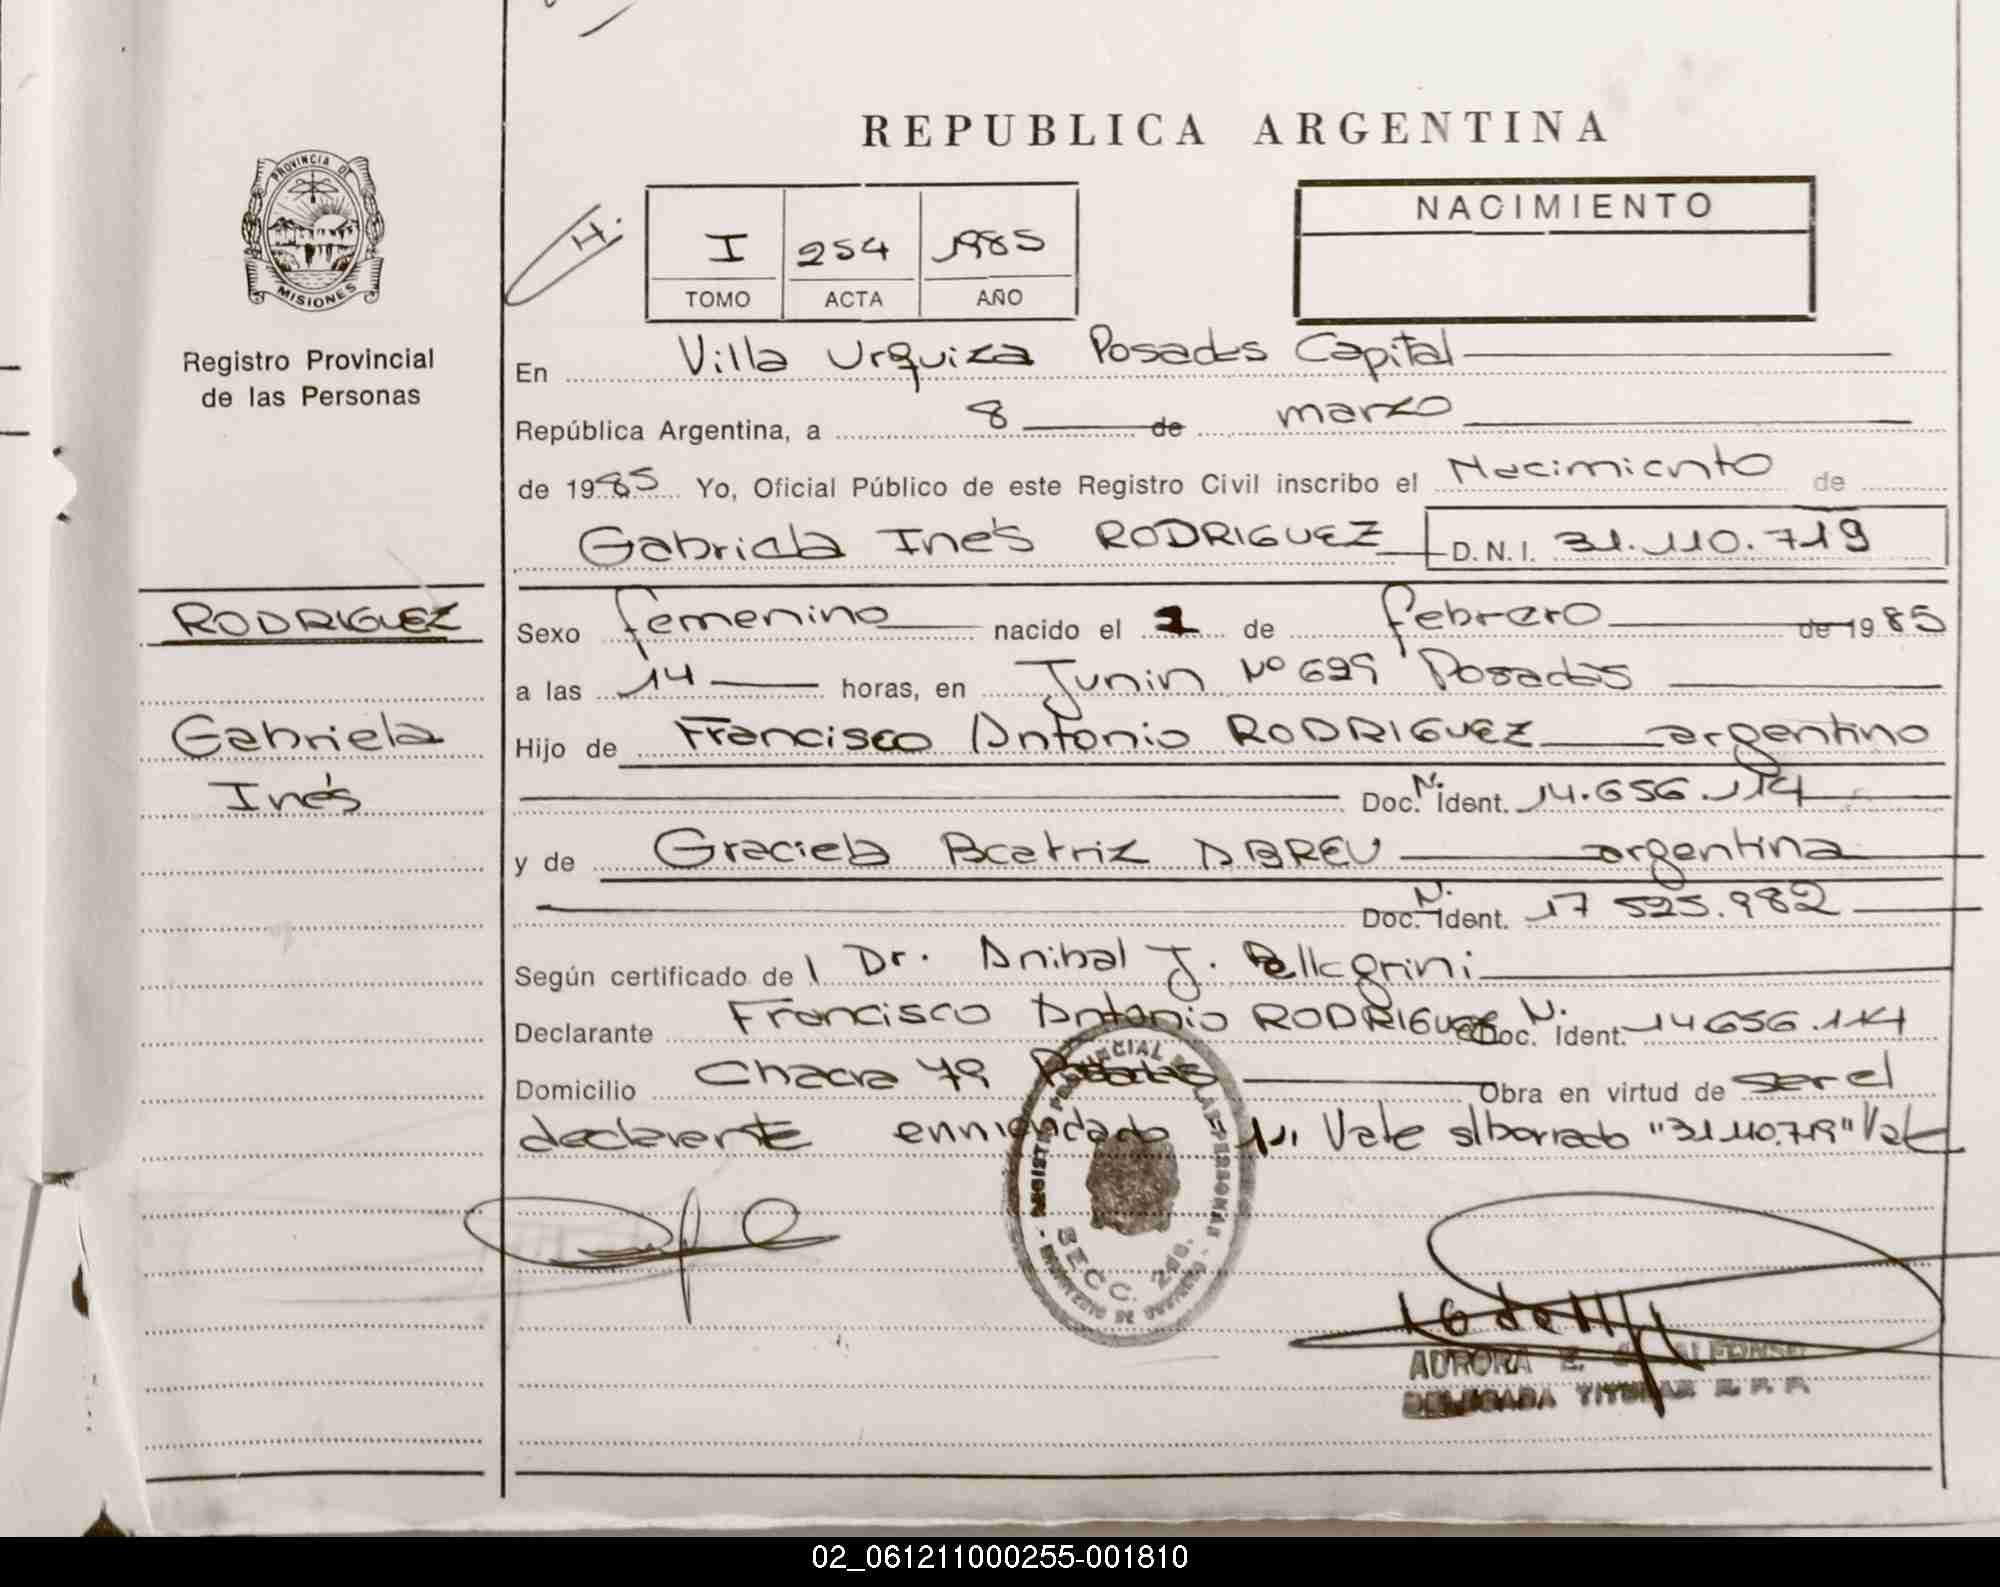 REPUBLICA ARGENTINA
PROVINCIA DE
MISIONES
Registro Provincial
de las Personas
H.
I 254 1985
TOMO ACTA AÑO
NACIMIENTO
En Villa Urquiza Posadas Capital
República Argentina, a 8 de marzo
de 1985 Yo, Oficial Público de este Registro Civil inscribo el Nacimiento de
Gabriela Inés RODRIGUEZ D.N.I. 31.110.719
RODRIGUEZ
Gabriela
Inés
Sexo femenino nacido el 1 de febrero de 1985
a las 14 horas, en Junin Nº 629 Posadas
Hijo de Francisco Antonio RODRIGUEZ argentino
Doc. N. Ident. 14.656.114
y de Graciela Beatriz ABREU argentina
Doc. N. Ident. 17 525.982
Según certificado de l Dr. Anibal J. Pellegrini
Declarante Francisco Antonio RODRIGUEZ Doc. N. Ident. 14656.114
Domicilio Chacra 79 Posadas Obra en virtud de ser el
declarante enmendado "1" Vale s/borrado "31.110.719" Vale
REGISTRO PROVINCIAL DE LAS PERSONAS
SECC. 2da.
AURORA E. ALFONSO
DELEGADA TITULAR R. P. P.
02_061211000255-001810